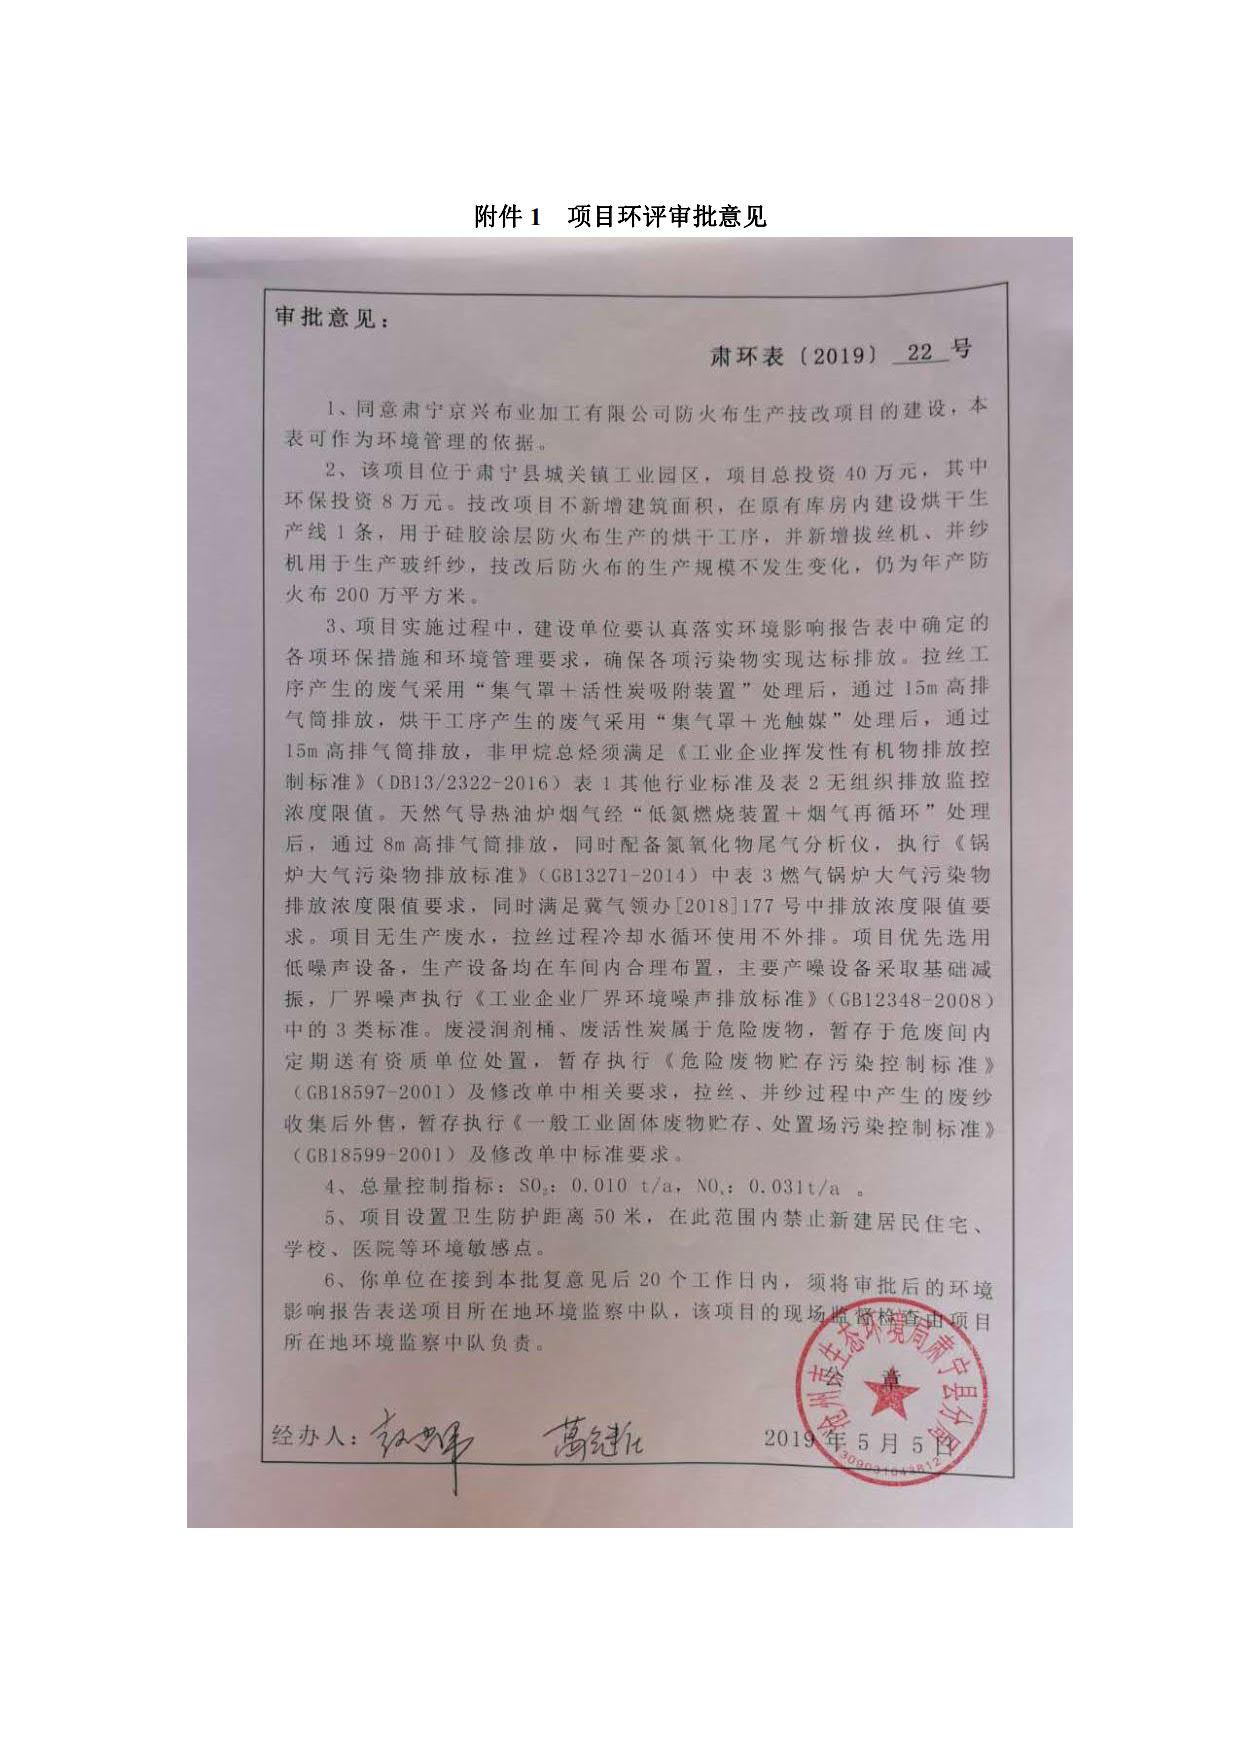 附件 1 项目环评审批意见
审批意见：
肃环表〔2019〕 22 号
1、同意肃宁京兴布业加工有限公司防火布生产技改项目的建设，本
表可作为环境管理的依据。
2、该项目位于肃宁县城关镇工业园区，项目总投资 40 万元，其中
环保投资 8 万元。技改项目不新增建筑面积，在原有库房内建设烘干生
产线 1 条，用于硅胶涂层防火布生产的烘干工序，并新增拔丝机、并纱
机用于生产玻纤纱，技改后防火布的生产规模不发生变化，仍为年产防
火布 200 万平方米。
3、项目实施过程中，建设单位要认真落实环境影响报告表中确定的
各项环保措施和环境管理要求，确保各项污染物实现达标排放。拉丝工
序产生的废气采用“集气罩＋活性炭吸附装置”处理后，通过 15m 高排
气筒排放，烘干工序产生的废气采用“集气罩＋光触媒”处理后，通过
15m 高排气筒排放，非甲烷总烃须满足《工业企业挥发性有机物排放控
制标准》（DB13/2322-2016）表 1 其他行业标准及表 2 无组织排放监控
浓度限值。天然气导热油炉烟气经“低氮燃烧装置＋烟气再循环”处理
后，通过 8m 高排气筒排放，同时配备氮氧化物尾气分析仪，执行《锅
炉大气污染物排放标准》（GB13271-2014）中表 3 燃气锅炉大气污染物
排放浓度限值要求，同时满足冀气领办[2018]177 号中排放浓度限值要
求。项目无生产废水，拉丝过程冷却水循环使用不外排。项目优先选用
低噪声设备，生产设备均在车间内合理布置，主要产噪设备采取基础减
振，厂界噪声执行《工业企业厂界环境噪声排放标准》（GB12348-2008）
中的 3 类标准。废浸润剂桶、废活性炭属于危险废物，暂存于危废间内
定期送有资质单位处置，暂存执行《危险废物贮存污染控制标准》
（GB18597-2001）及修改单中相关要求，拉丝、并纱过程中产生的废纱
收集后外售，暂存执行《一般工业固体废物贮存、处置场污染控制标准》
（GB18599-2001）及修改单中标准要求。
4、总量控制指标：SO₂：0.010 t/a，NOₓ：0.031t/a 。
5、项目设置卫生防护距离 50 米，在此范围内禁止新建居民住宅、
学校、医院等环境敏感点。
6、你单位在接到本批复意见后 20 个工作日内，须将审批后的环境
影响报告表送项目所在地环境监察中队，该项目的现场监督检查由项目
所在地环境监察中队负责。
沧州市生态环境局肃宁县分局
公 章
经办人：
2019 年 5 月 5 日